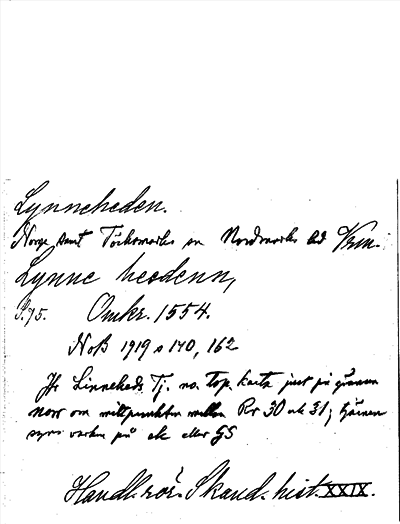 Lynneheden.
Norge samt Töcksmarks sn Nordmarks hd Vrm.
Lynne heedenn,
S. 75. Omkr. 1554.
NoB 1919 s 140, 162
Jfr Linnekeds Tj. no. top. karta just på gränsen
norr om mittpunkten mellan Rr 30 och 31; tjärnen
syns varken på ek eller GS
Handl. rör. Skand. hist. XXIX.